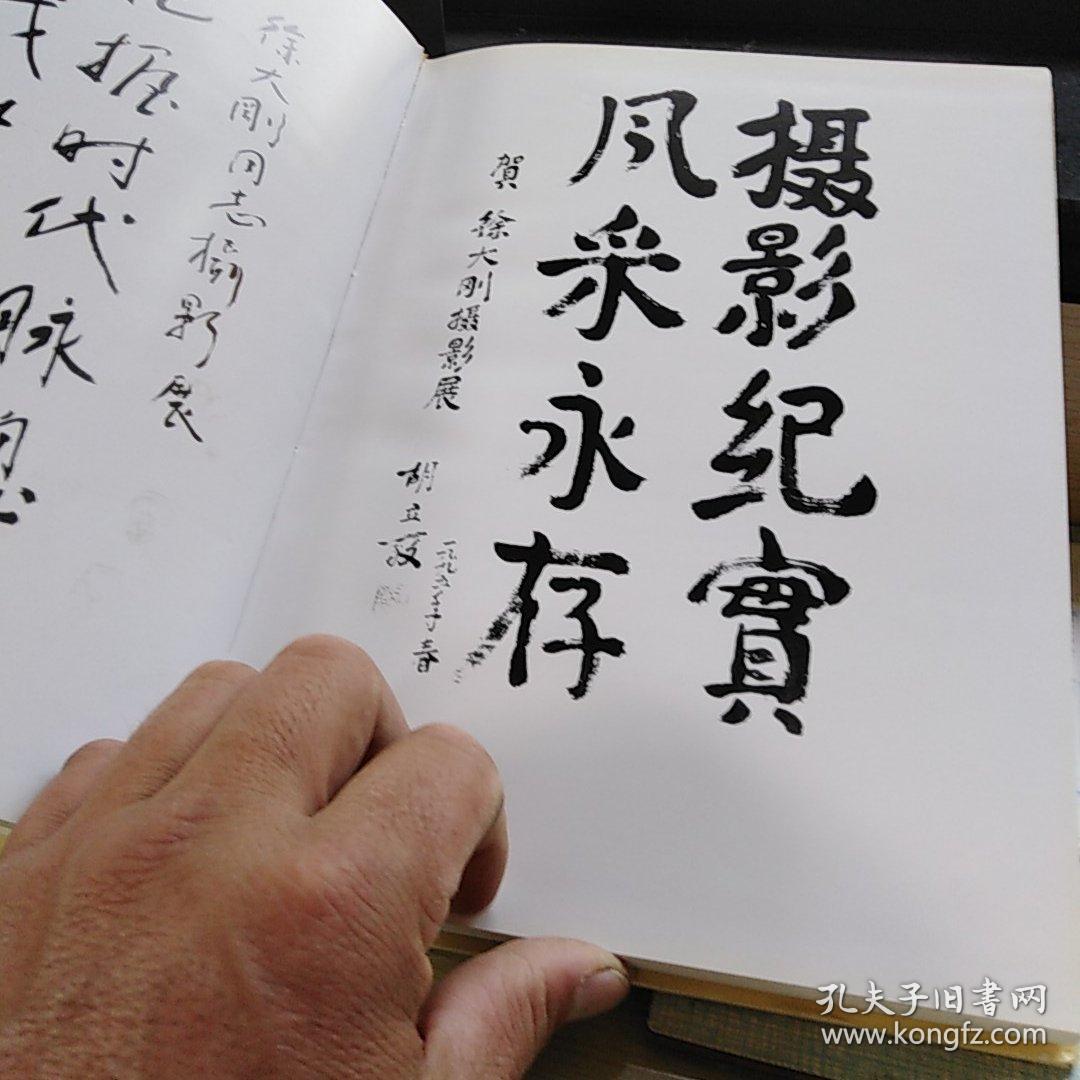 摄影纪實
风采永存
賀 徐大刚摄影展
胡立教
一九九五年春
徐大剛同志摄影展
把握时代脉
孔夫子旧書网
www.kongfz.com